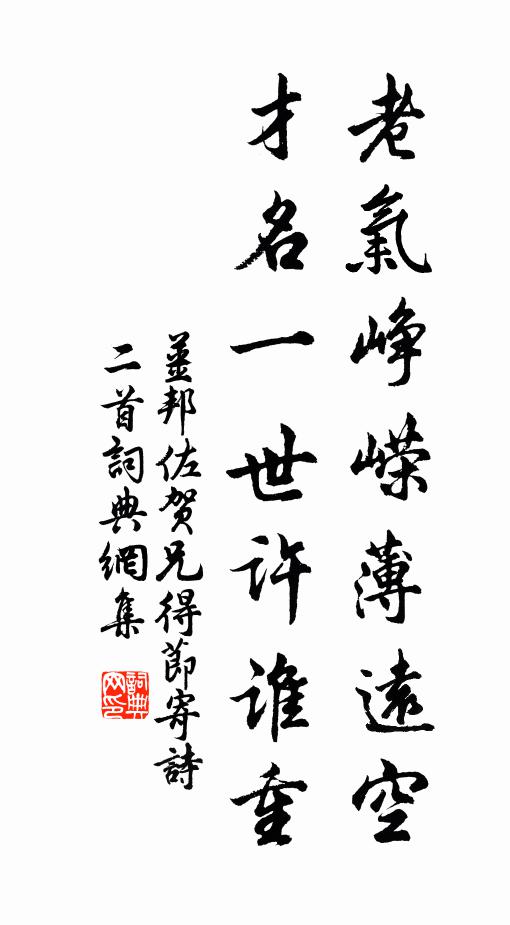 老氣崢嶸薄遠空
才名一世許誰重
葉邦佐賀兄得節寄詩
二首詞典網集
詞典
网印